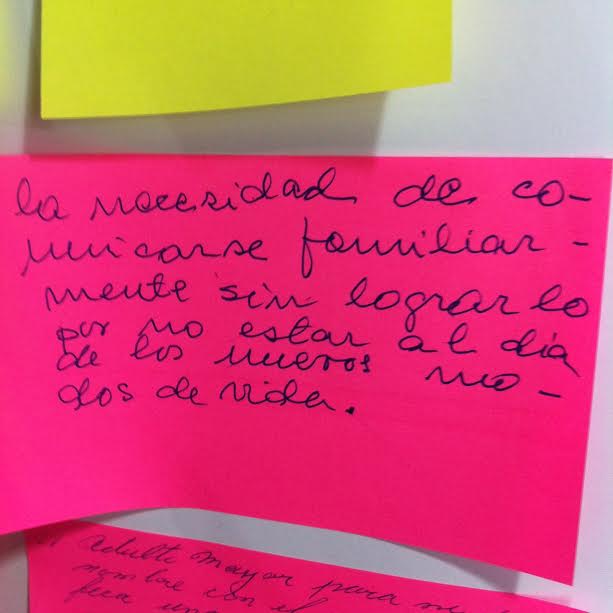 la necesidad de co-
municarse familiar-
mente sin lograrlo
por no estar al dia
de los nuevos mo-
dos de vida.
adulto mayor para me
nombre con el